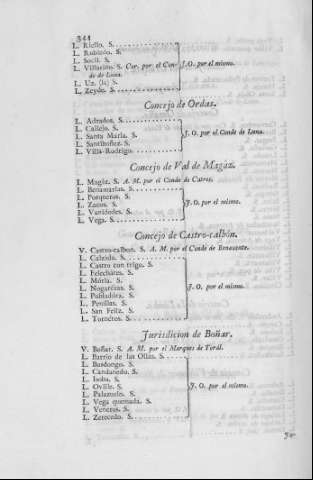 344
L. Riello. S.
L. Robledo. S.
L. Socil. S.
L. Villarino. S. Cor. por el Con- J. O. por el mismo.
de de Luna.
L. Uz. (la) S.
L. Zeyde. S.
Concejo de Ordas.
L. Adrados. S.
L. Callejo. S.
L. Santa Maria. S. J. O. por el Conde de Luna.
L. Santibañez. S.
L. Villa-Rodrigo.
Concejo de Val de Magáz.
L. Magáz. S. A. M. por el Conde de Catres.
L. Benamarias. S.
L. Porqueros. S.
L. Zacos. S. J. O. por el mismo.
L. Vanidodes. S.
L. Vega. S.
Concejo de Castro-calbón.
V. Castro-calbon. S. A. M. por el Conde de Benavente.
L. Calzada. S.
L. Castro con trigo. S.
L. Felechares. S.
L. Morla. S.
L. Nogarejas. S. J. O. por el mismo.
L. Pobladura. S.
L. Pinillas. S.
L. San Feliz. S.
L. Torneros. S.
Jurisdicion de Boñar.
V. Boñar. S. A. M. por el Marques de Torál.
L. Barrio de las Ollas. S.
L. Bardongo. S.
L. Candanedo. S.
L. Isoba. S.
L. Oville. S. J. O. por el mismo.
L. Palazuelo. S.
L. Vega quemada. S.
L. Veneros. S.
L. Zerecedo. S.